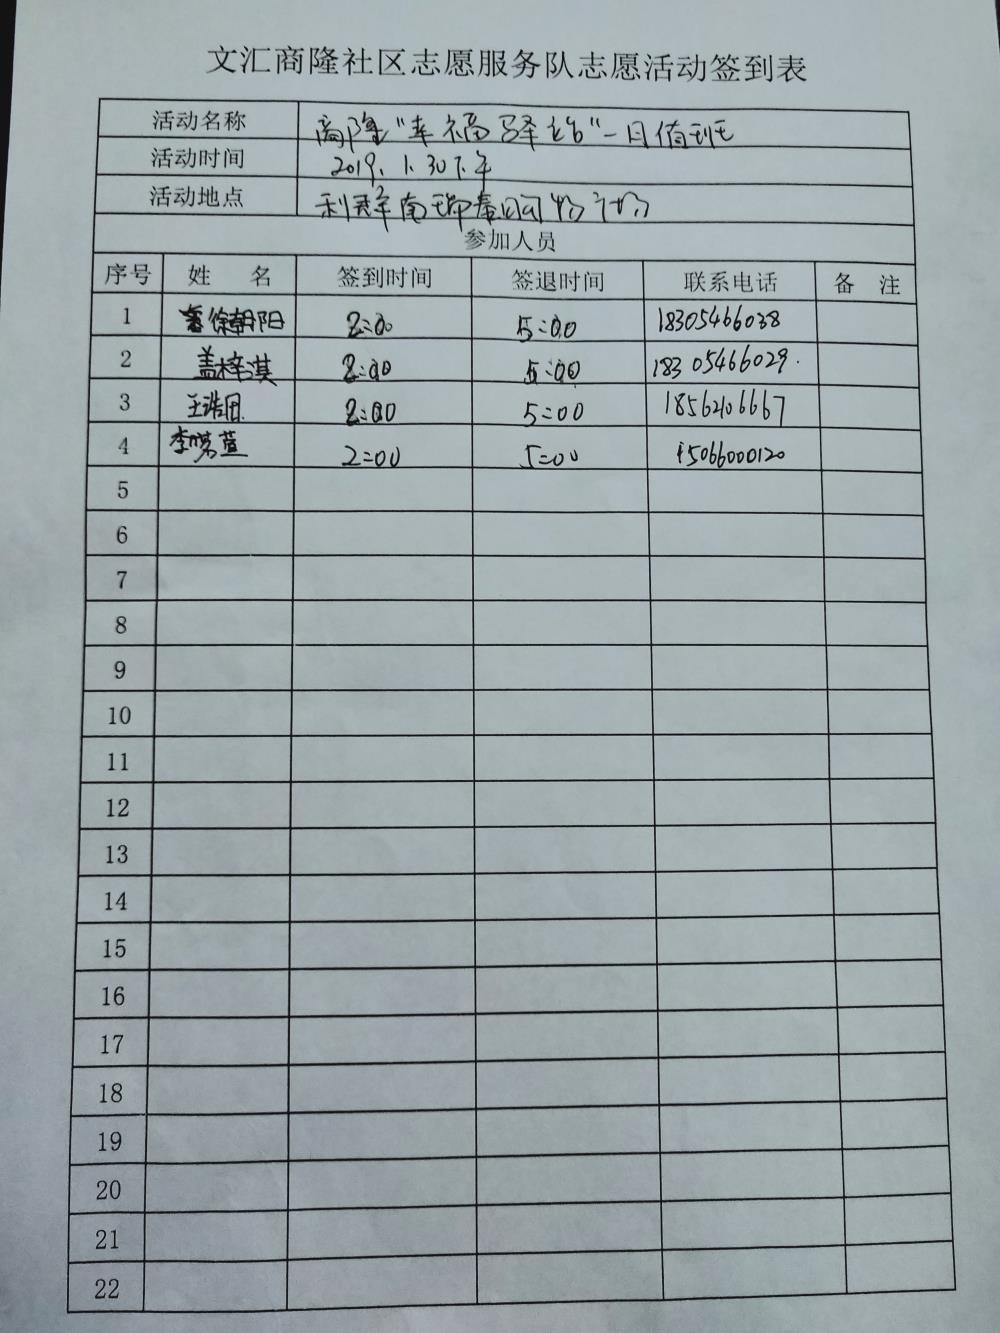 文汇商隆社区志愿服务队志愿活动签到表
活动名称 商隆"幸福驿站"一月值班
活动时间 2019.1.30下午
活动地点 利群南瑞泰园广场
参加人员
序号 姓 名 签到时间 签退时间 联系电话 备 注
1 徐朝阳 2:00 5:00 18305466038
2 盖梓淇 2:00 5:00 18305466029.
3 王浩田 2:00 5:00 1856206667
4 李茗萱 2:00 5:00 15066000120
5
6
7
8
9
10
11
12
13
14
15
16
17
18
19
20
21
22